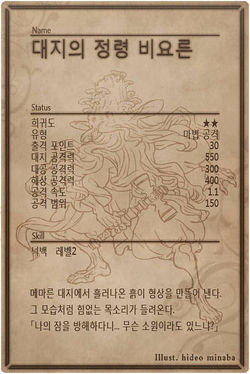 Name
대지의 정령 비요른
Status
희귀도 ★★
유형 마법 공격
출격 포인트 30
대지 공격력 550
대공 공격력 300
해상 공격력 400
공격 속도 1.1
공격 범위 150
Skill
넉백 레벨2
메마른 대지에서 흘러나온 흙이 형상을 만들어 낸다.
그 모습처럼 힘없는 목소리가 들려온다.
「나의 잠을 방해하다니... 무슨 소원이라도 있느냐?」
Illust. hideo minaba